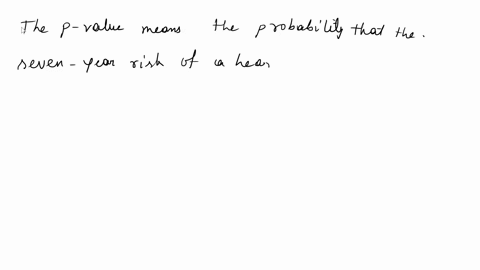 The p-value means the probability that the.
seven-year risk of a hear